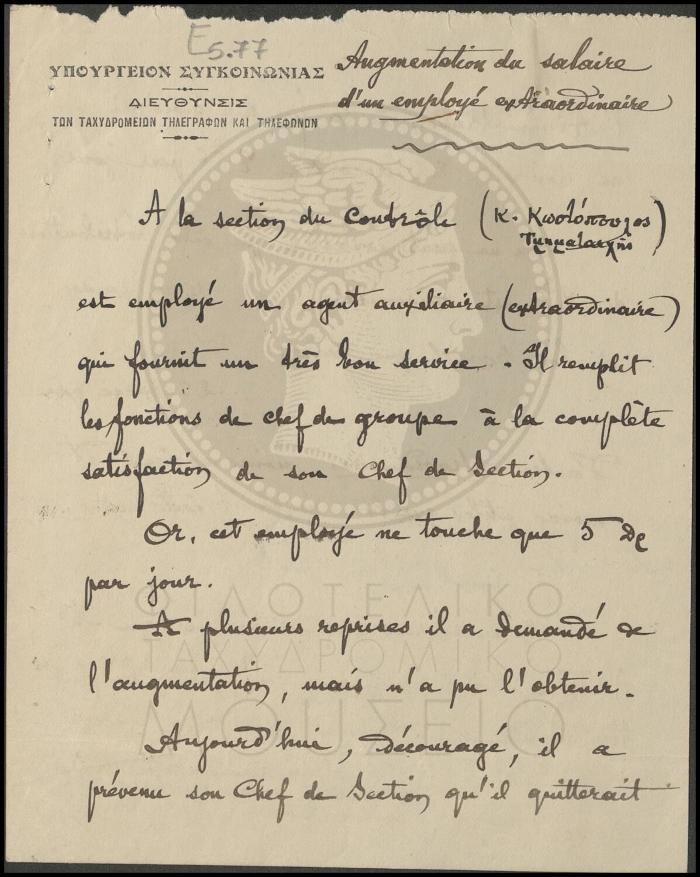 E5.77
ΥΠΟΥΡΓΕΙΟΝ ΣΥΓΚΟΙΝΩΝΙΑΣ
ΔΙΕΥΘΥΝΣΙΣ
ΤΩΝ ΤΑΧΥΔΡΟΜΕΙΩΝ ΤΗΛΕΓΡΑΦΩΝ ΚΑΙ ΤΗΛΕΦΩΝΩΝ
Augmentation du salaire
d'un employé extraordinaire
A la section du Contrôle (κ. Κωστόπουλος
Τμηματάρχης)
est employé un agent auxiliaire (extraordinaire)
qui fournit un très bon service. Il remplit
les fonctions de chef de groupe à la complète
satisfaction de son Chef de Section.
Or, cet employé ne touche que 5 Dr
par jour.
A plusieurs reprises il a demandé de
l'augmentation, mais n'a pu l'obtenir.
Aujourd'hui, découragé, il a
prévenu son Chef de Section qu'il quitterait
ΦΙΛΟΤΕΛΙΚΟ
ΤΑΧΥΔΡΟΜΙΚΟ
ΜΟΥΣΕΙΟ